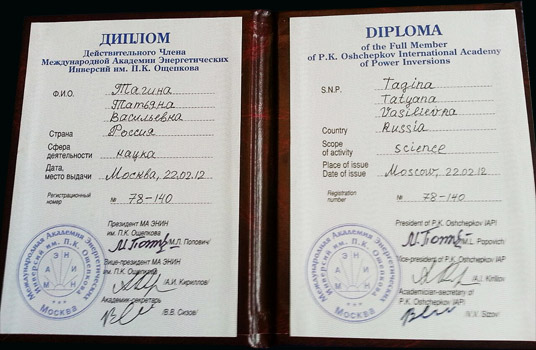 ДИПЛОМ
Действительного Члена
Международной Академии Энергетических
Инверсий им. П.К. Ощепкова
Ф.И.О. Тагина
Татьяна
Васильевна
Страна Россия
Сфера
деятельности наука
Дата,
место выдачи Москва, 22.02.12
Регистрационный
номер № 78-140
Президент МА ЭНИН
им. П.К. Ощепкова
/М.Л. Попович/
Вице-президент МА ЭНИН
им. П.К. Ощепкова
/А.И. Кириллов/
Академик-секретарь
/В.В. Сизов/
Международная Академия Энергетических
Инверсий им. П.К. Ощепкова
МАЭНИН
Москва
DIPLOMA
of the Full Member
of P.K. Oshchepkov International Academy
of Power Inversions
S.N.P. Tagina
Tatyana
Vasilievna
Country Russia
Scope
of activity science
Place of issue
Date of issue Moscow, 22.02.12
Registration
number № 78-140
President of P.K. Oshchepkov IAPI
/M.L. Popovich/
Vice-president of P.K. Oshchepkov IAPI
/A.I. Kirillov/
Academician-secretary of
P.K. Oshchepkov IAPI
/V.V. Sizov/
Международная Академия Энергетических
Инверсий им. П.К. Ощепкова
МАЭНИН
Москва